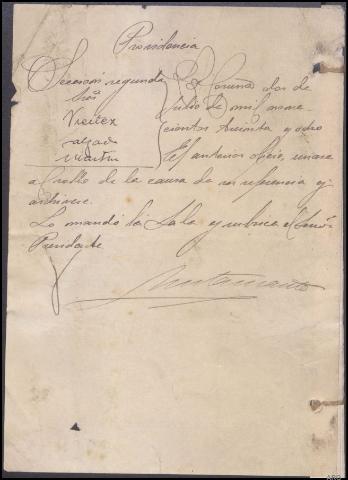 Providencia
Sección segunda
Sres
Vieitez
Salgado
Martin
La Coruña dos de
Julio de mil nove-
cientos treinta y ocho
El anterior oficio, unase
al rollo de la causa de su referencia y
archivese.
Lo mandó la Sala y rubrica el Señor
Presidente